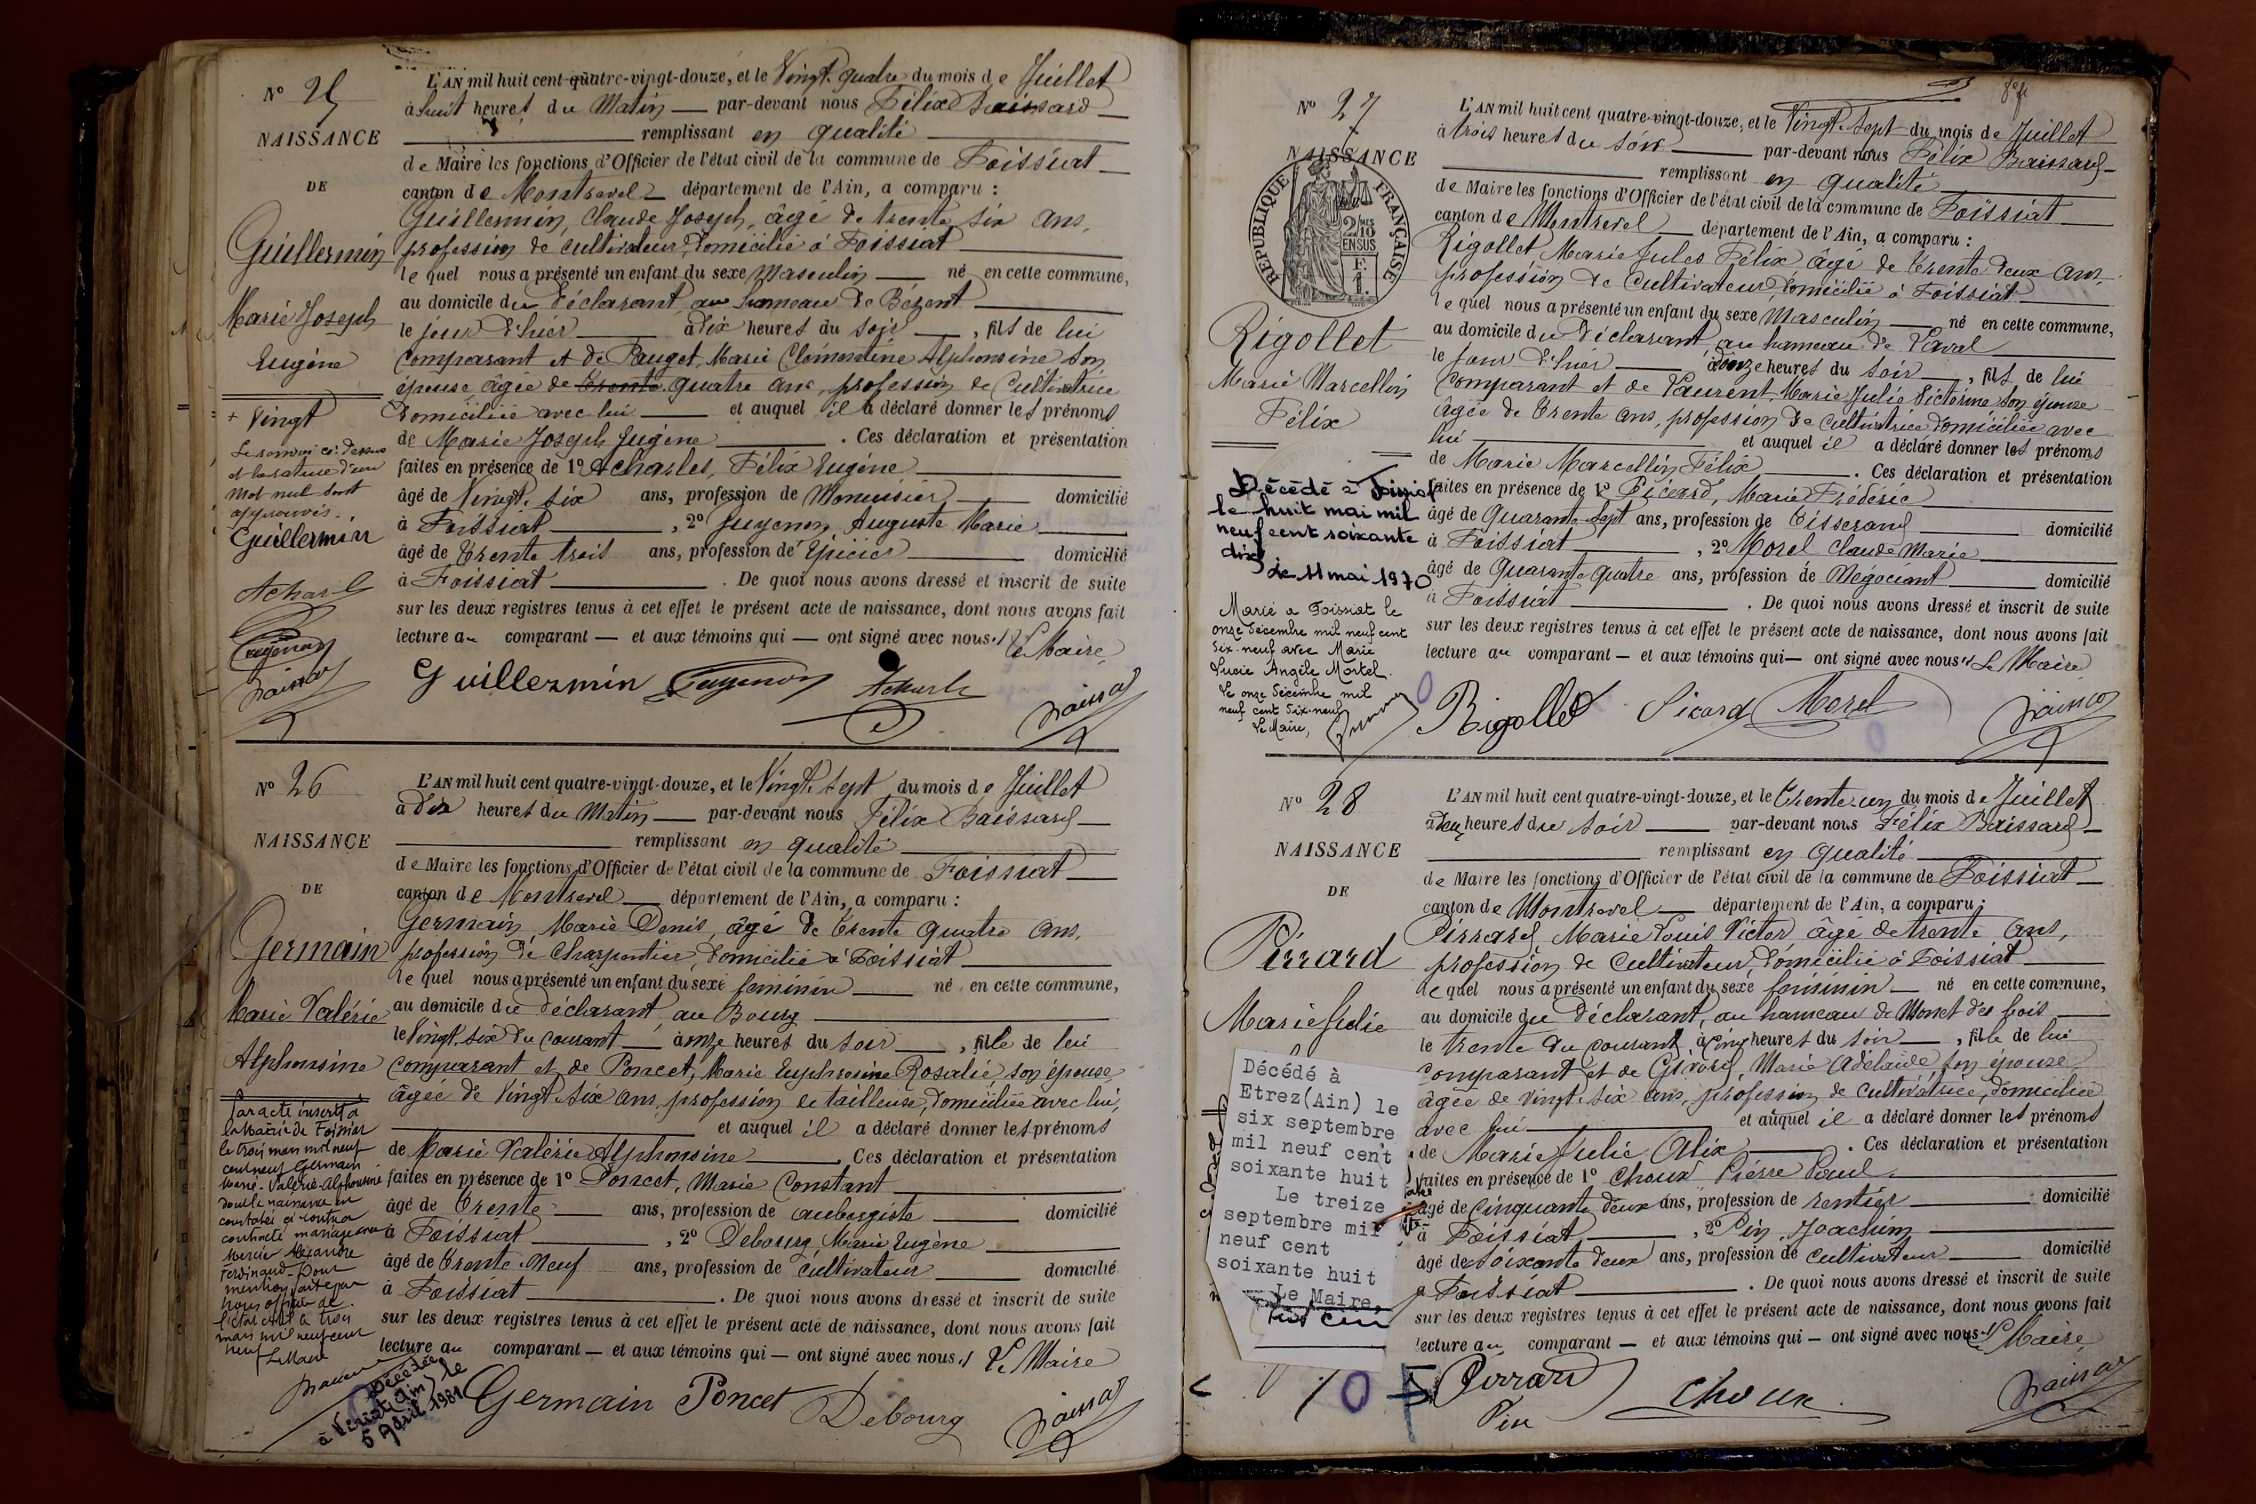 N° 25
NAISSANCE
DE
Guillermin
Marie Joseph
Eugène
+ Vingt
Le renvoi ci-dessus
et la rature d'un
mot nul sont
approuvés.
Guillermin
Acharl
L'AN mil huit cent quatre-vingt-douze, et le Vingt quatre du mois de Juillet
à huit heures du Matin — par-devant nous Félix Baissard
remplissant en qualité
de Maire les fonctions d'Officier de l'état civil de la commune de Foissiat
canton de Montrevel département de l'Ain, a comparu :
Guillermin, Claude Joseph, âgé de trente six ans,
profession de cultivateur, domicilié à Foissiat
lequel nous a présenté un enfant du sexe Masculin né en cette commune,
au domicile du déclarant, au hameau de Bézent
le jour d'hier à dix heures du soir, fils de lui
comparant et de Pauget, Marie Clémentine Alphonsine son
épouse, âgée de trente quatre ans, profession de Cultivatrice
domiciliée avec lui et auquel il a déclaré donner les prénoms
de Marie Joseph Eugène . Ces déclaration et présentation
faites en présence de 1° Acharles, Félix Eugène
âgé de Vingt six ans, profession de Menuisier domicilié
à Foissiat, 2° Guyenon, Auguste Marie
âgé de trente trois ans, profession de Epicier domicilié
à Foissiat . De quoi nous avons dressé et inscrit de suite
sur les deux registres tenus à cet effet le présent acte de naissance, dont nous avons fait
lecture au comparant — et aux témoins qui — ont signé avec nous. Le Maire,
Guillermin Guyenon Acharle
N° 26
NAISSANCE
DE
Germain
Marie Valérie
Alphonsine
Par acte inscrit à
la Mairie de Foissiat
le trois mars mil neuf
cent neuf Germain
Marie-Valérie-Alphonsine
dont la naissance est
constatée ci-contre a
contracté mariage avec
Mercier Alexandre
Ferdinand. Pour
mention faite par
nous officier de
l'état civil le trois
mars mil neuf cent
neuf Le Maire
Décédée
à Viriat (Ain) le
5 Avril 1981
L'AN mil huit cent quatre-vingt-douze, et le Vingt sept du mois de Juillet
à dix heures du Matin — par-devant nous Félix Baissard
remplissant en qualité
de Maire les fonctions d'Officier de l'état civil de la commune de Foissiat
canton de Montrevel département de l'Ain, a comparu :
Germain, Marie Denis, âgé de trente quatre ans,
profession de Charpentier, domicilié à Foissiat
lequel nous a présenté un enfant du sexe féminin né en cette commune,
au domicile du déclarant, au Bourg
le Vingt six du courant à onze heures du soir, fille de lui
comparant et de Poncet, Marie Euphrosine Rosalie, son épouse,
âgée de vingt six ans, profession de tailleuse, domiciliée avec lui,
et auquel il a déclaré donner les prénoms
de Marie Valérie Alphonsine . Ces déclaration et présentation
faites en présence de 1° Poncet, Marie Constant
âgé de trente ans, profession de aubergiste domicilié
à Foissiat, 2° Debourg Marie Eugène
âgé de trente neuf ans, profession de cultivateur domicilié
à Foissiat . De quoi nous avons dressé et inscrit de suite
sur les deux registres tenus à cet effet le présent acte de naissance, dont nous avons fait
lecture au comparant — et aux témoins qui — ont signé avec nous. Le Maire
Germain Poncet Debourg
N° 27
NAISSANCE
RÉPUBLIQUE FRANÇAISE
2/10 EN SUS
Rigollet
Marie Marcellin
Félix
Décédé à Foissiat
le huit mai mil
neuf cent soixante
dix
Le 11 mai 1970
Marié à Foissiat le
onze décembre mil neuf cent
dix-neuf avec Marie
Lucie Angèle Mortel.
Le onze décembre mil
neuf cent dix-neuf
Le Maire,
L'AN mil huit cent quatre-vingt-douze, et le Vingt sept du mois de Juillet
à trois heures du soir par-devant nous Félix Baissard
remplissant en qualité
de Maire les fonctions d'Officier de l'état civil de la commune de Foissiat
canton de Montrevel département de l'Ain, a comparu :
Rigollet, Marie Jules Félix âgé de trente deux ans,
profession de Cultivateur, domicilié à Foissiat
lequel nous a présenté un enfant du sexe Masculin né en cette commune,
au domicile du déclarant, au hameau de Laval
le jour d'hier à onze heures du soir, fils de lui
comparant et de Laurent, Marie Julie Victorine son épouse
âgée de trente ans, profession de cultivatrice domiciliée avec
lui et auquel il a déclaré donner les prénoms
de Marie Marcellin Félix . Ces déclaration et présentation
faites en présence de 1° Picard, Marie Frédéric
âgé de quarante sept ans, profession de Tisserand domicilié
à Foissiat, 2° Morel Claude Marie
âgé de quarante quatre ans, profession de Négociant domicilié
à Foissiat . De quoi nous avons dressé et inscrit de suite
sur les deux registres tenus à cet effet le présent acte de naissance, dont nous avons fait
lecture au comparant — et aux témoins qui — ont signé avec nous. Le Maire
Rigollet Picard Morel
N° 28
NAISSANCE
DE
Pirrard
Marie Julie
Décédé à
Etrez(Ain) le
six septembre
mil neuf cent
soixante huit
Le treize
septembre mil
neuf cent
soixante huit
Le Maire,
L'AN mil huit cent quatre-vingt-douze, et le trente un du mois de Juillet
à deux heures du soir par-devant nous Félix Baissard
remplissant en qualité
de Maire les fonctions d'Officier de l'état civil de la commune de Foissiat
canton de Montrevel département de l'Ain, a comparu :
Pirrard, Marie Louis Victor âgé de trente ans,
profession de cultivateur, domicilié à Foissiat
lequel nous a présenté un enfant du sexe féminin né en cette commune,
au domicile du déclarant, au hameau de Monet des bois
le trente du courant à cinq heures du soir, fille de lui
comparant et de Givord, Marie Adélaïde, son épouse
âgée de vingt six ans, profession de cultivatrice, domiciliée
avec lui et auquel il a déclaré donner les prénoms
de Marie Julie Alix . Ces déclaration et présentation
faites en présence de 1° Choux Pierre Paul
âgé de cinquante deux ans, profession de rentier domicilié
à Foissiat, 2° Pin, Joachim
âgé de soixante deux ans, profession de cultivateur domicilié
à Foissiat . De quoi nous avons dressé et inscrit de suite
sur les deux registres tenus à cet effet le présent acte de naissance, dont nous avons fait
lecture au comparant — et aux témoins qui — ont signé avec nous. Le Maire
Pirrard Choux
Pin